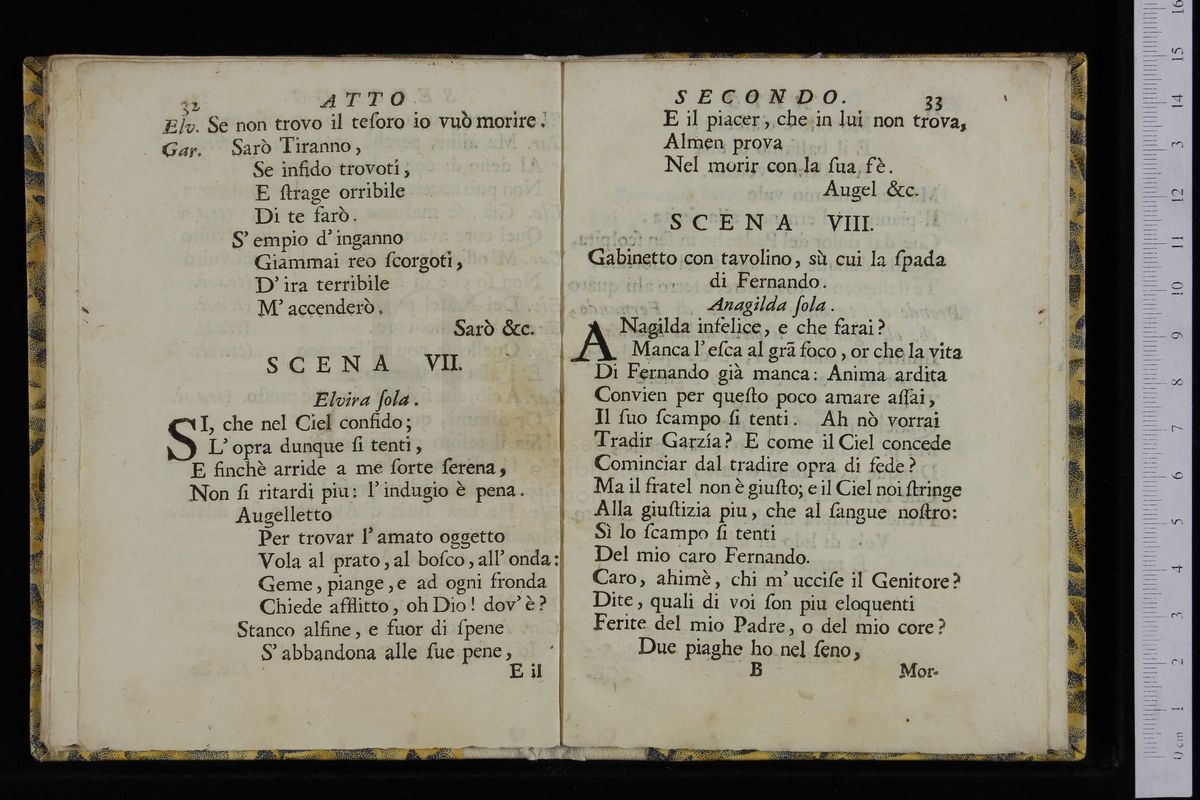 32 ATTO
Elv. Se non trovo il teſoro io vuò morire.
Gar. Sarò Tiranno,
Se infido trovoti,
E ſtrage orribile
Di te farò.
S' empio d' inganno
Giammai reo ſcorgoti,
D' ira terribile
M' accenderò.
Sarò &c.
SCENA VII.
Elvira ſola.
SI, che nel Ciel confido;
L' opra dunque ſi tenti,
E finchè arride a me ſorte ſerena,
Non ſi ritardi piu: l' indugio è pena.
Augelletto
Per trovar l' amato oggetto
Vola al prato, al boſco, all' onda:
Geme, piange, e ad ogni fronda
Chiede afflitto, oh Dio! dov' è?
Stanco alfine, e fuor di ſpene
S' abbandona alle ſue pene,
E il
SECONDO. 33
E il piacer, che in lui non trova,
Almen prova
Nel morir con la ſua fè.
Augel &c.
SCENA VIII.
Gabinetto con tavolino, sù cui la ſpada
di Fernando.
Anagilda ſola.
ANagilda infelice, e che farai?
Manca l' eſca al grã foco, or che la vita
Di Fernando già manca: Anima ardita
Convien per queſto poco amare aſſai,
Il ſuo ſcampo ſi tenti. Ah nò vorrai
Tradir Garzía? E come il Ciel concede
Cominciar dal tradire opra di fede?
Ma il fratel non è giuſto; e il Ciel noi ſtringe
Alla giuſtizia piu, che al ſangue noſtro:
Sì lo ſcampo ſi tenti
Del mio caro Fernando.
Caro, ahimè, chi m' ucciſe il Genitore?
Dite, quali di voi ſon piu eloquenti
Ferite del mio Padre, o del mio core?
Due piaghe ho nel ſeno,
B Mor-
0 cm 1 2 3 4 5 6 7 8 9 10 11 12 13 14 15 16